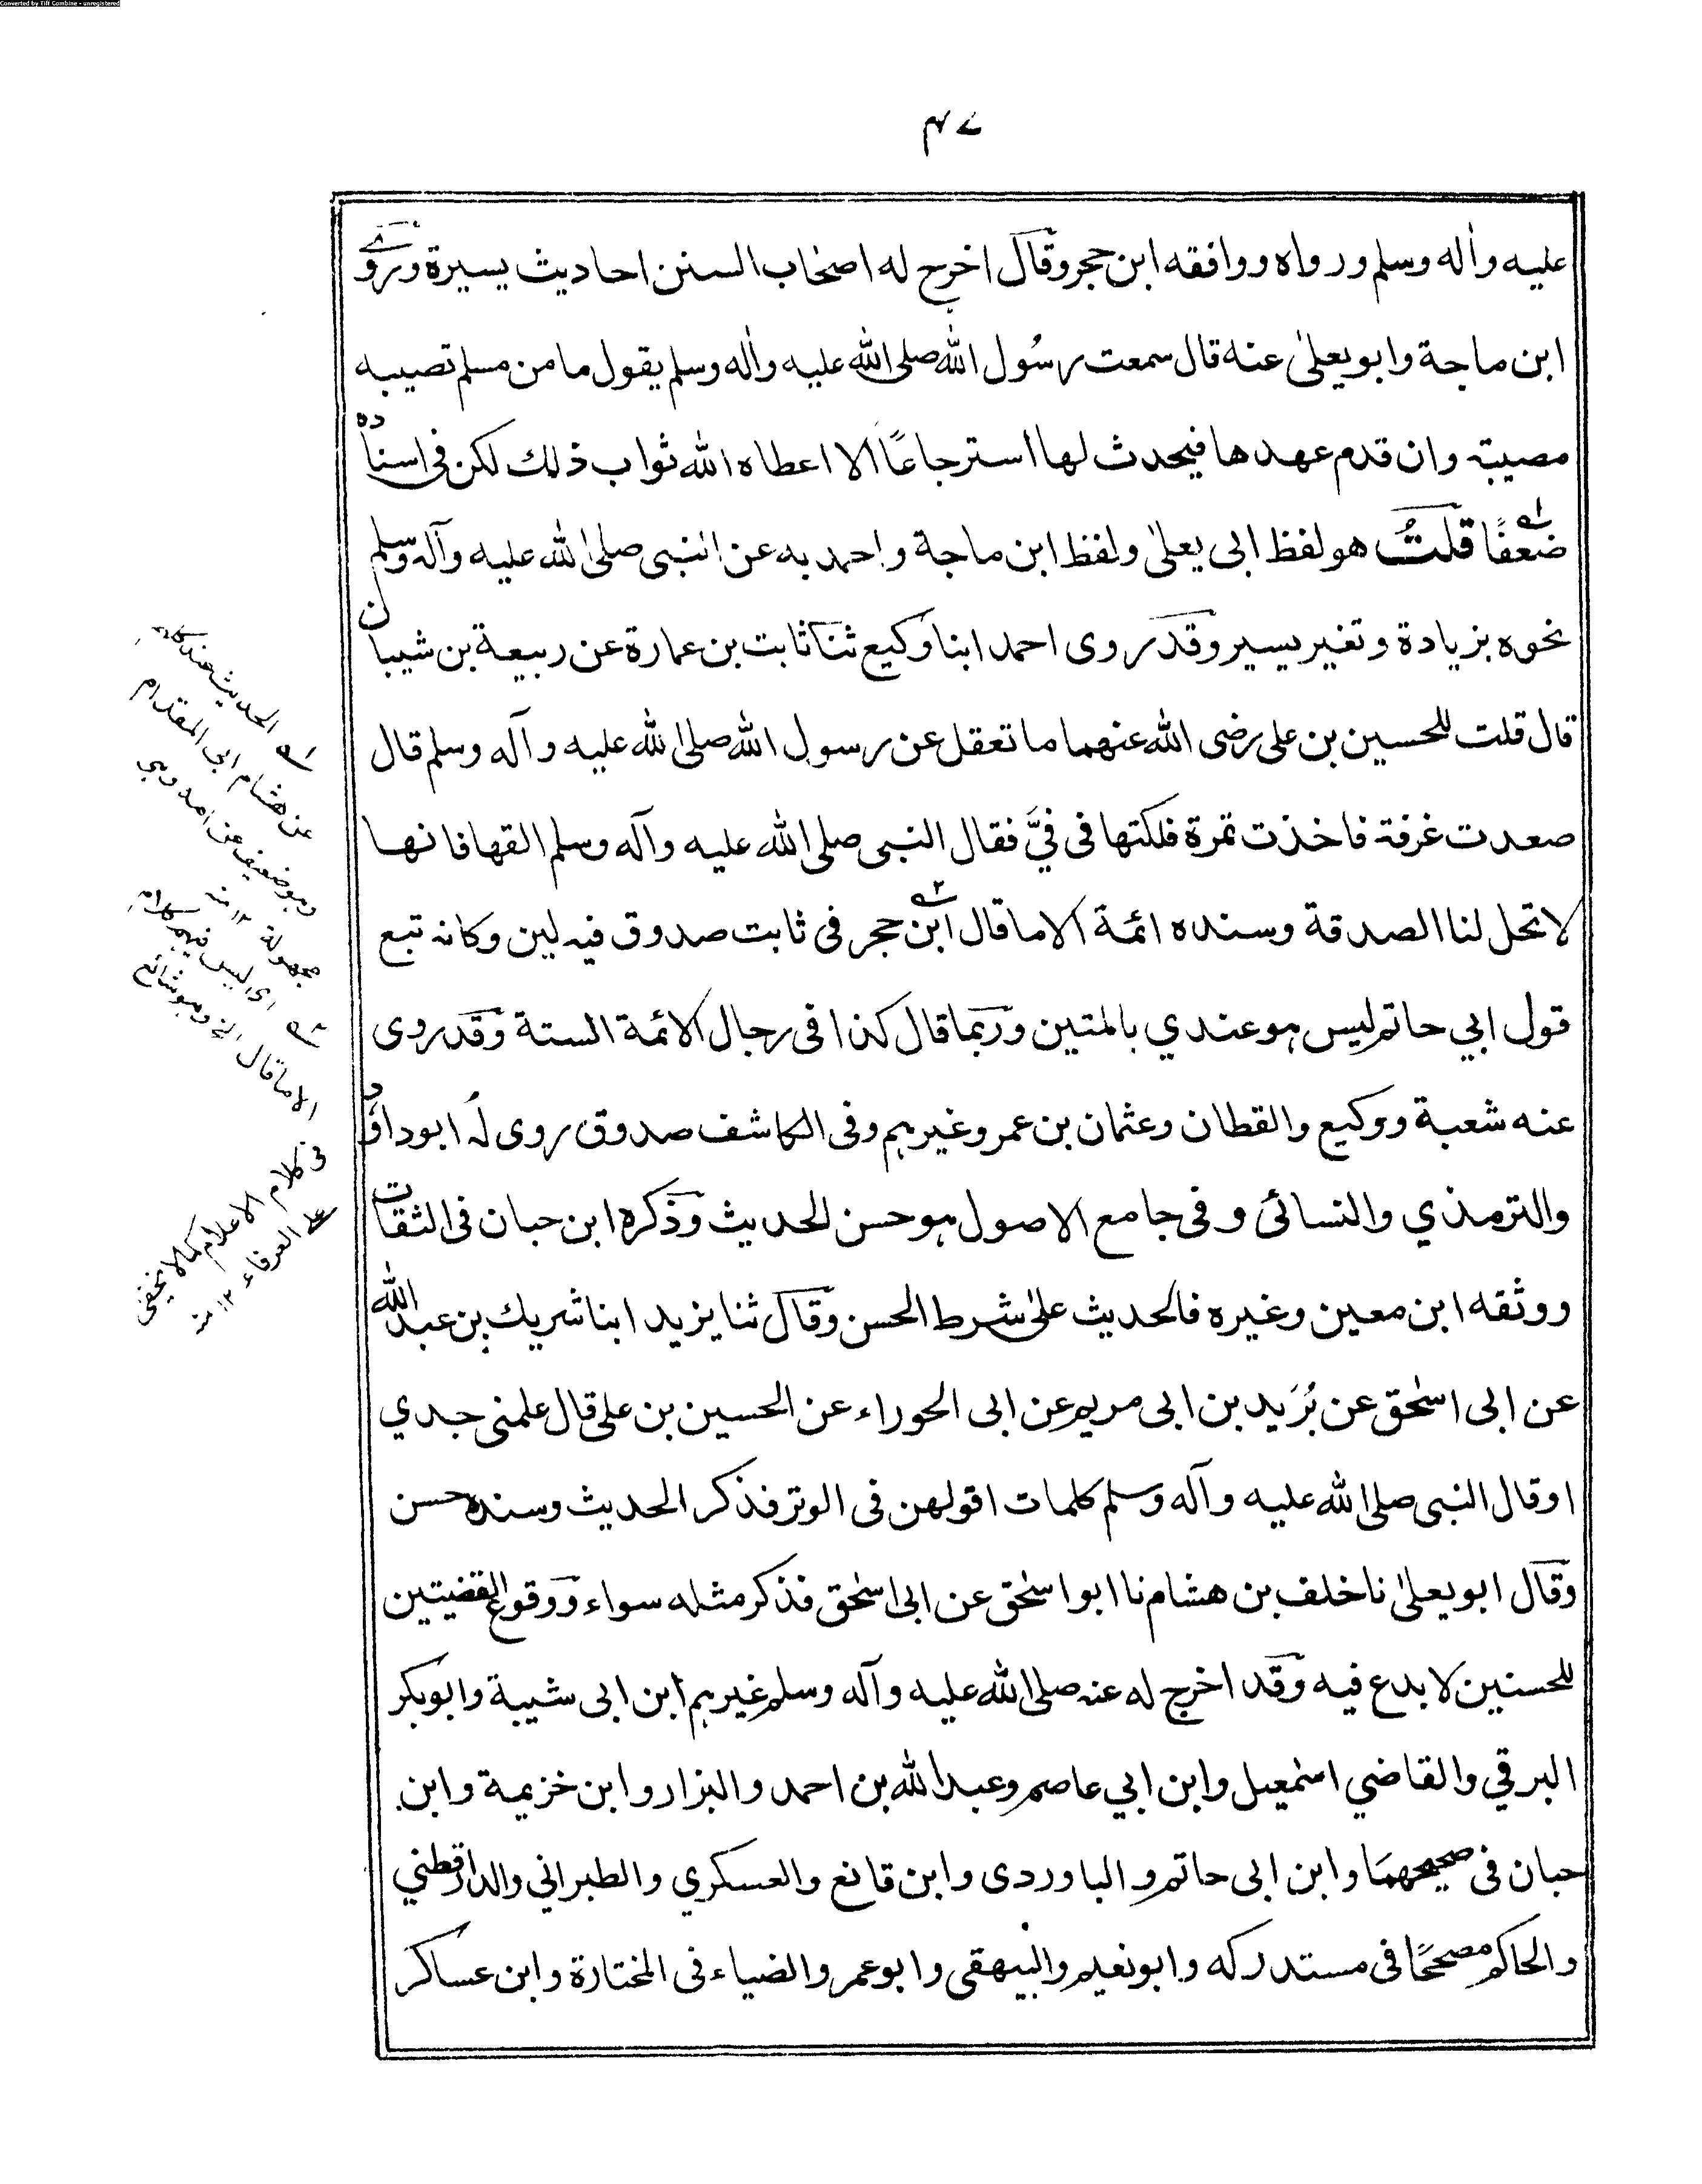 Converted by Tiff Combine - unregistered
٤٧
عليه واٰله وسلم ورواه ووافقه ابن حجر وقال اخرج له اصحاب السنن احاديث يسيرة وروى
ابن ماجة وابو يعلىٰ عنه قال سمعت رسُول الله صلى الله عليه واٰله وسلم يقول ما من مسلم تصيبه
مصيبة وان قدم عهدها فيحدث لها استرجاعًا الا اعطاه الله ثواب ذلك لكن فى اسناده
ضعفًا قلتُ هو لفظ ابى يعلىٰ ولفظ ابن ماجة واحمد به عن النبى صلى الله عليه وآله وسلم
نحوه بزيادة وتغير يسير وقد روى احمد ابنا وكيع ثنا ثابت بن عمارة عن ربيعة بن شيبان
قال قلت للحسين بن على رضى الله عنهما ما تعقل عن رسول الله صلى الله عليه وآله وسلم قال
صعدت غرفة فاخذت تمرة فلكتها فى فيَّ فقال النبى صلى الله عليه وآله وسلم القها فانها
لا تحل لنا الصدقة وسنده ائمة الا ما قال ابن حجر فى ثابت صدوق فيه لين وكانه تبع
قول ابي حاتم ليس هو عندي بالمتين وربما قال كذا فى رجال الائمة الستة وقد روى
عنه شعبة ووكيع والقطان وعثمان بن عمر وغيرهم وفى الكاشف صدوق روى لهُ ابو داؤد
والترمذي والنسائى وفى جامع الاصول هو حسن الحديث وذكره ابن حبان فى الثقات
ووثقه ابن معين وغيره فالحديث علىٰ شرط الحسن وقال ثنا يزيد ابنا شريك بن عبد الله
عن ابى اسحٰق عن بُرَيد بن ابى مريم عن ابى الحوراء عن الحسين بن على قال علمنى جدي
او قال النبى صلى الله عليه وآله وسلم كلمات اقولهن فى الوتر فذكر الحديث وسنده حسن
وقال ابو يعلىٰ نا خلف بن هشام نا ابوا سحٰق عن ابى اسحٰق فذكر مثله سواء ووقوع القضيتين
للحسنين لا بدع فيه وقد اخرج له عنه صلى الله عليه وآله وسلم غيرهم ابن ابى شيبة وابو بكر
البرقي والقاضي اسمٰعيل وابن ابي عاصم وعبد الله بن احمد والبزار وابن خزيمة وابن
حبان فى صحيحهما وابن ابى حاتم والباوردى وابن قانع والعسكري والطبراني والدارقطني
والحاكم مصححًا فى مستدركه وابو نعيم والبيهقى وابو عمر والضياء فى المختارة وابن عساكر
الحديث عند
عن هشام ابى المقدام
وهو ضعيف عن امه وهى
مجهولة ١٢ منه
اى ليس فيهم كلام
الا ما قال الخ وهو شائع
فى كلام الاعلام كما لا يخفى
على العرفاء ١٢ منه